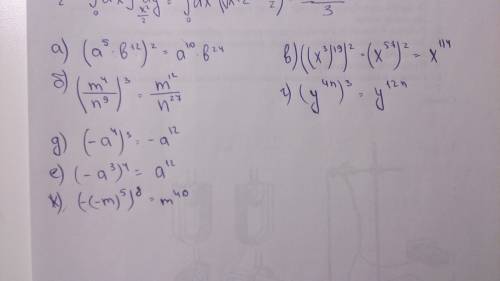 а) (a⁵ · b¹²)² = a¹⁰ · b²⁴
б) (m⁴/n⁹)³ = m¹²/n²⁷
в) ((x³)¹⁹)² = (x⁵⁷)² = x¹¹⁴
г) (y⁴ⁿ)³ = y¹²ⁿ
д) (-a⁴)³ = -a¹²
е) (-a³)⁴ = a¹²
ж) (-(-m)⁵)⁸ = m⁴⁰